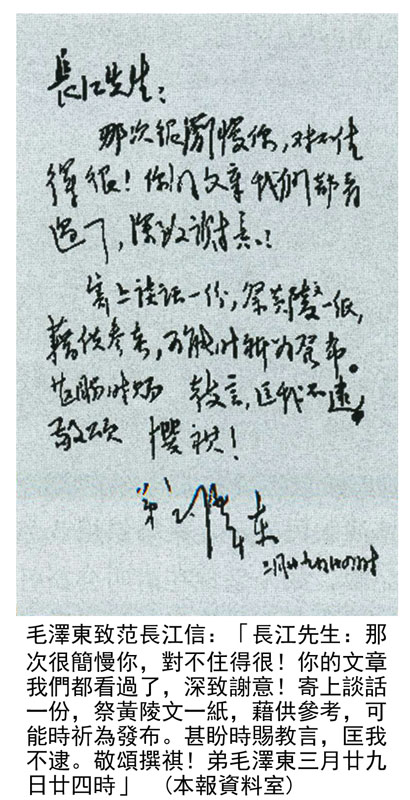 長江先生：
那次很簡慢你，对不住
得很！你的文章我們都看
过了，深致謝意！
寄上談話一份，祭黄陵文一纸，
藉供參考，可能时祈为發布。
甚盼时赐教言，匡我不逮。
敬颂 撰祺！
弟毛澤东
三月廿九日廿四时
毛澤東致范長江信：「長江先生：那
次很簡慢你，對不住得很！你的文章
我們都看過了，深致謝意！寄上談話
一份，祭黃陵文一紙，藉供參考，可
能時祈為發布。甚盼時賜教言，匡我
不逮。敬頌撰祺！弟毛澤東三月廿九
日廿四時」　（本報資料室）